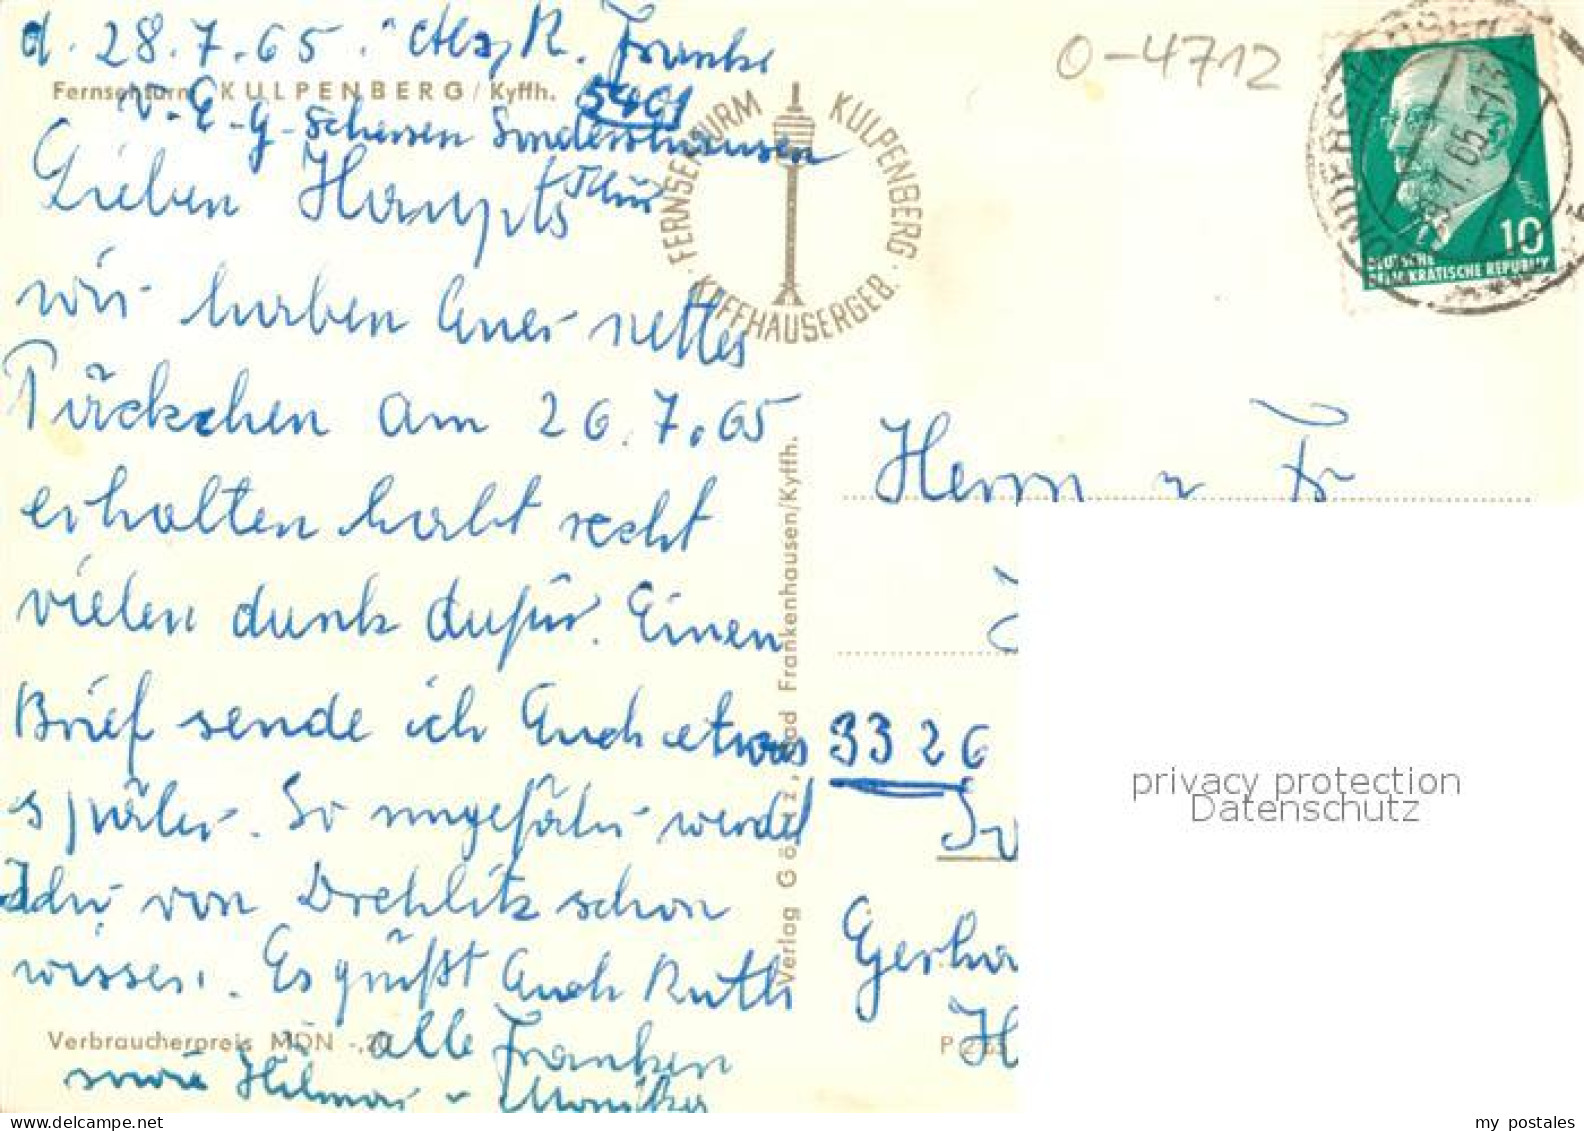 d. 28.7.65. Abs. R. Franke
Fernsehturm KULPENBERG / Kyffh.
5401
Sondershausen
Thür
Lieben Haupts
wir haben Euer nettes
Päckchen am 26.7.65
erhalten habt recht
vielen dank dafür. Einen
Brief sende ich Euch etwas
später. So ungefähr werdet
Ihr von Drehlitz schon
wissen. Es grüßt Euch Ruth
alle Franken
sowie Hilmar u. Monika
Verbraucherpreis MDN -,20
FERNSEHTURM KULPENBERG
· KYFFHÄUSERGEB. ·
Verlag Görtz, Bad Frankenhausen/Kyffh.
O-4712
10
DEUTSCHE
DEMOKRATISCHE REPUBLIK
Herrn u Fr
3326
Gerha
H
privacy protection
Datenschutz
my postales